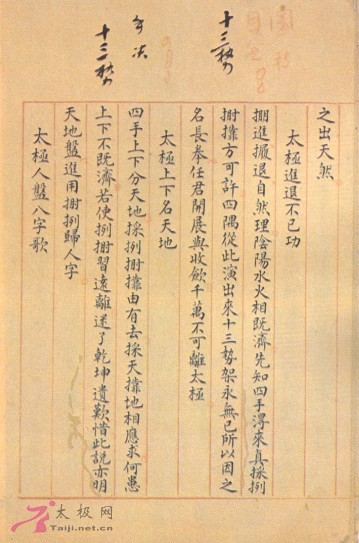 十三勢
十三勢
之出天然
太極進退不已功
掤進攦退自然理陰陽水火相既濟先知四手淂來真採挒
肘靠方可許四隅從此演出來十三勢架永無已所以因之
名長拳任君開展與收歛千萬不可離太極
太極上下名天地
四手上下分天地採挒肘靠由有去採天靠地相應求何患
上下不既濟若使挒肘習遠離迷了乾坤遺歎惜此說亦明
天地盤進用肘挒歸人字
太極人盤八字歌
太极网
Taiji.net.cn